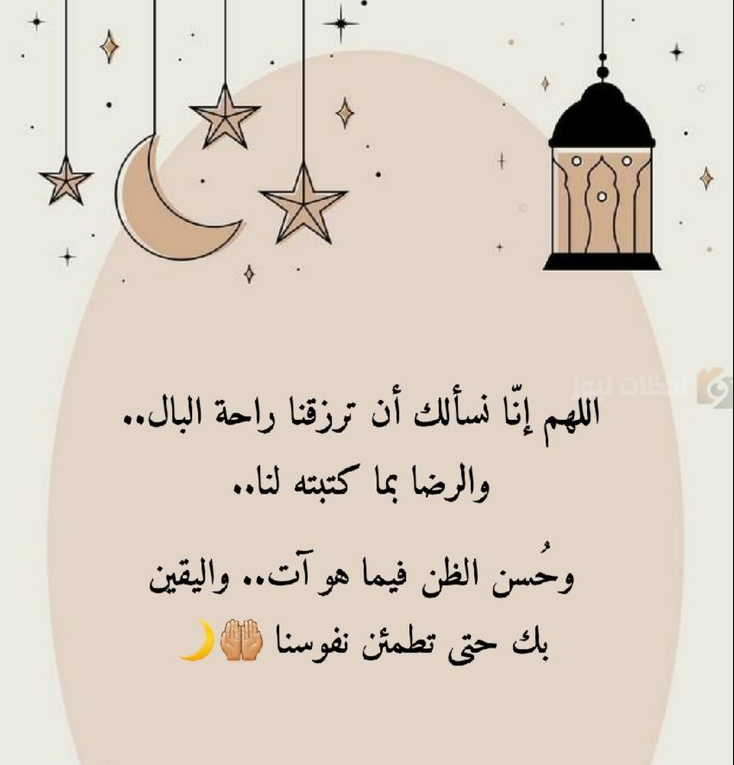 لحظات نيوز
اللهم إنّا نسألك أن ترزقنا راحة البال..
والرضا بما كتبته لنا..
وحُسن الظن فيما هو آت.. واليقين
بك حتى تطمئن نفوسنا 🤲🏼🌙